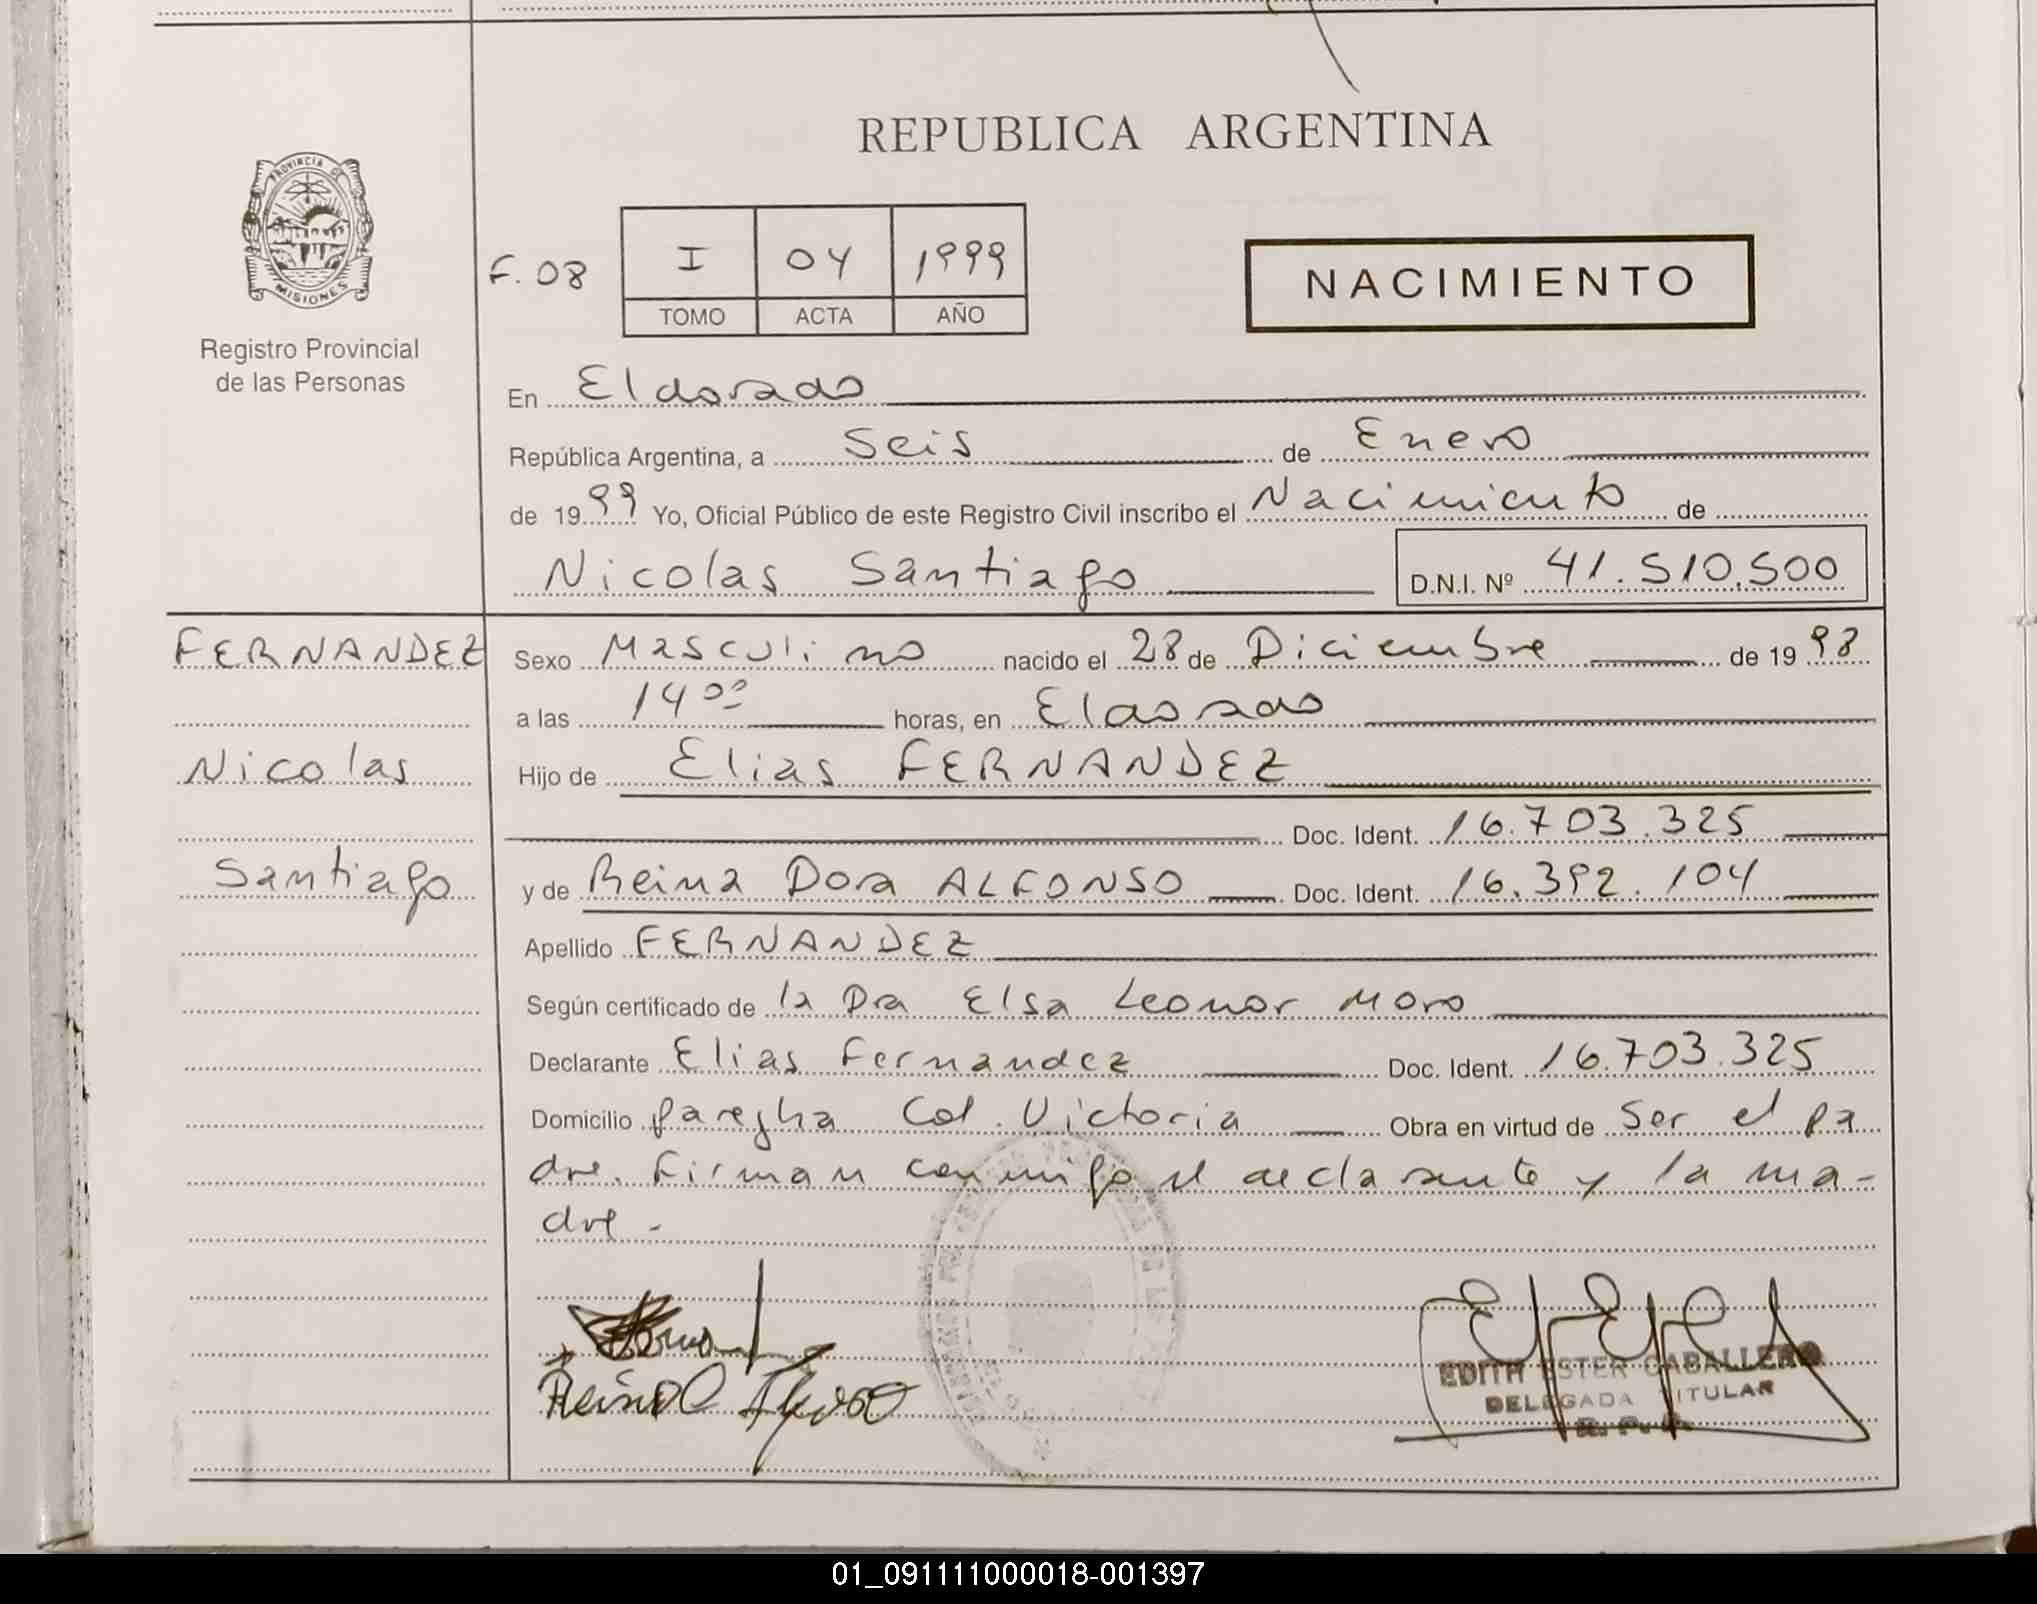 REPUBLICA ARGENTINA
PROVINCIA DE
MISIONES
Registro Provincial
de las Personas
F. 08
I 04 1999
TOMO ACTA AÑO
NACIMIENTO
En Eldorado
República Argentina, a Seis de Enero
de 1999 Yo, Oficial Público de este Registro Civil inscribo el Nacimiento de
Nicolas Santiago D.N.I. Nº 41.510.500
FERNANDEZ
Nicolas
Santiago
Sexo Masculino nacido el 28 de Diciembre de 1998
a las 14 00 horas, en Eldorado
Hijo de Elias FERNANDEZ
Doc. Ident. 16.703.325
y de Reina Dora ALFONSO Doc. Ident. 16.392.104
Apellido FERNANDEZ
Según certificado de la Dra Elsa Leonor Moro
Declarante Elias Fernandez Doc. Ident. 16.703.325
Domicilio Col. Victoria Obra en virtud de Ser el pa
dre. Firman conmigo el declarante y la ma-
dre.-
EDITH ESTER CABALLERO
DELEGADA TITULAR
R. P. P.
01_091111000018-001397